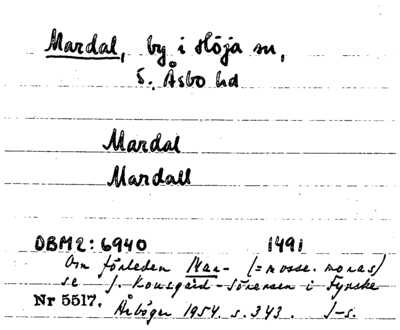 Mardal, by i Höja sn,
S. Åsbo hd
Mardal
Mardall
DBM2: 6940 1491
Om förleden Mar- (= mosse. moras)
se J. Kousgård-Sörensen i Fynske
Nr 5517. Årböger 1954. s. 343. J-s.